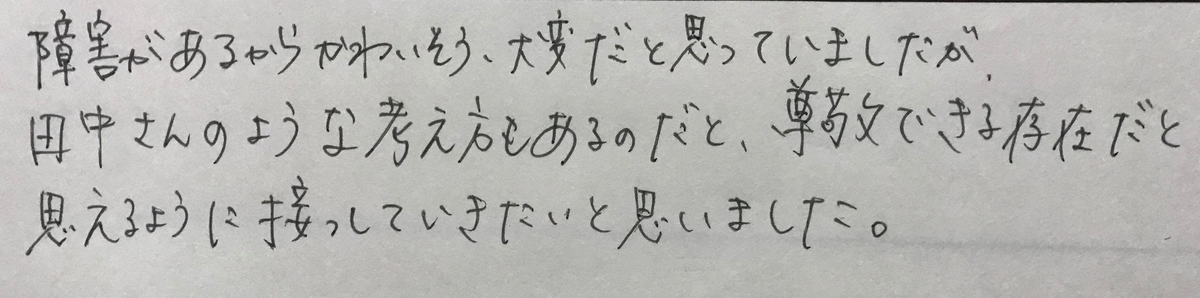 障害があるからかわいそう、大変だと思っていましたが、
田中さんのような考え方もあるのだと、尊敬できる存在だと
思えるように接っしていきたいと思いました。